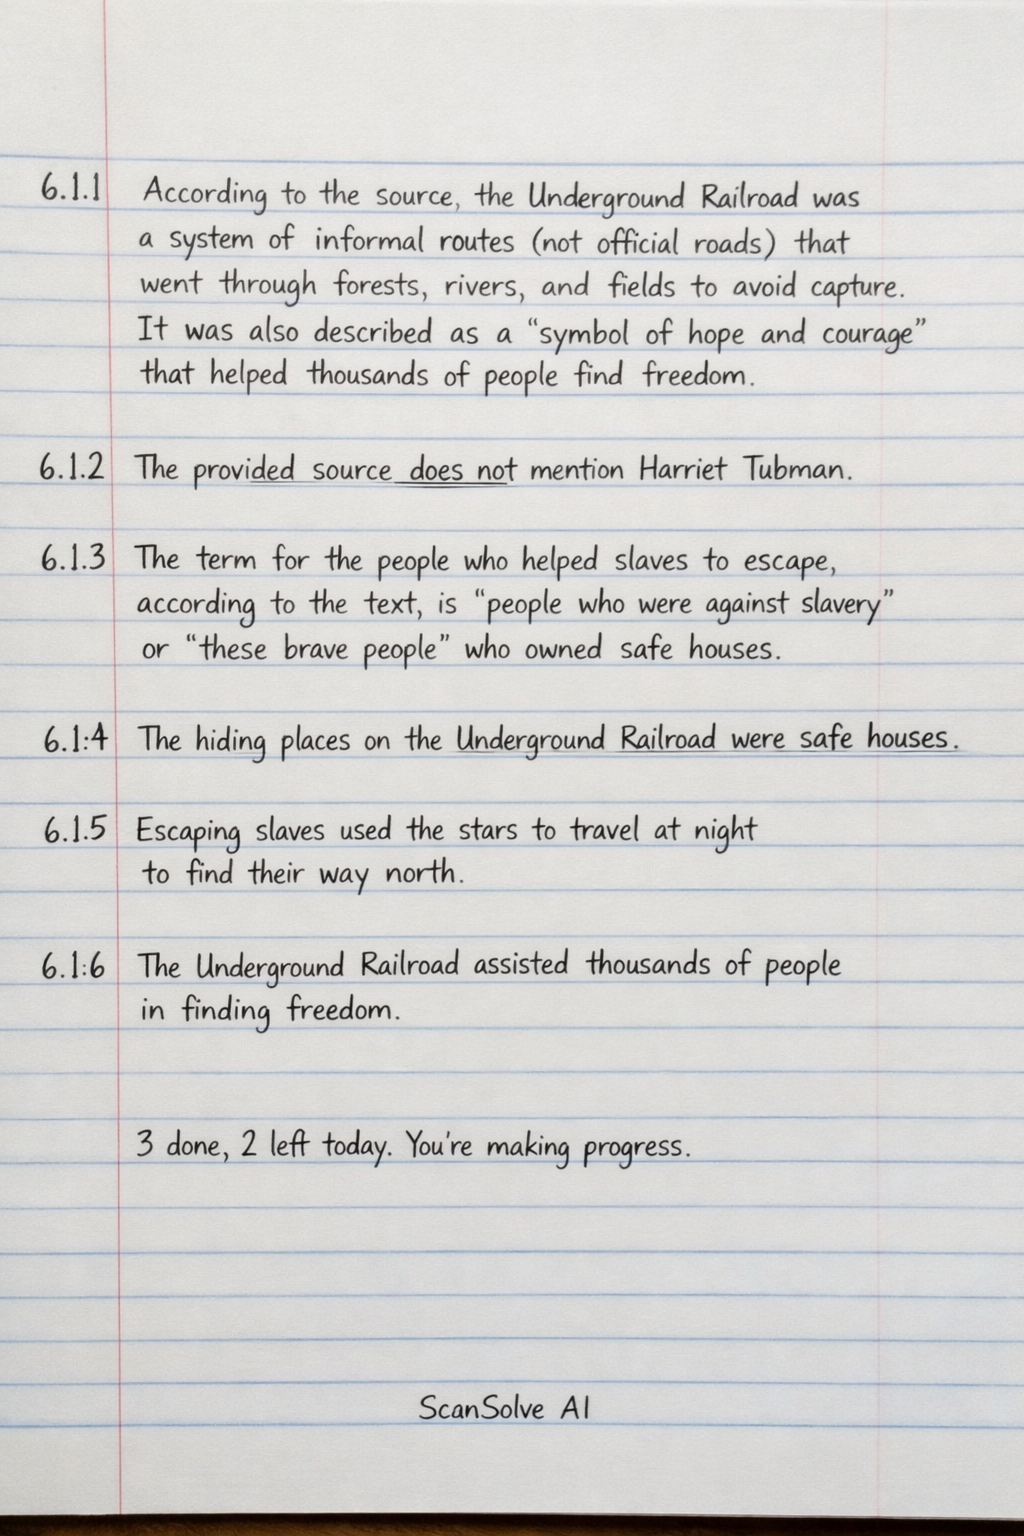 6.1.1 According to the source, the Underground Railroad was
a system of informal routes (not official roads) that
went through forests, rivers, and fields to avoid capture.
It was also described as a “symbol of hope and courage”
that helped thousands of people find freedom.
6.1.2 The provided source does not mention Harriet Tubman.
6.1.3 The term for the people who helped slaves to escape,
according to the text, is “people who were against slavery”
or “these brave people” who owned safe houses.
6.1:4 The hiding places on the Underground Railroad were safe houses.
6.1.5 Escaping slaves used the stars to travel at night
to find their way north.
6.1:6 The Underground Railroad assisted thousands of people
in finding freedom.
3 done, 2 left today. You're making progress.
ScanSolve AI